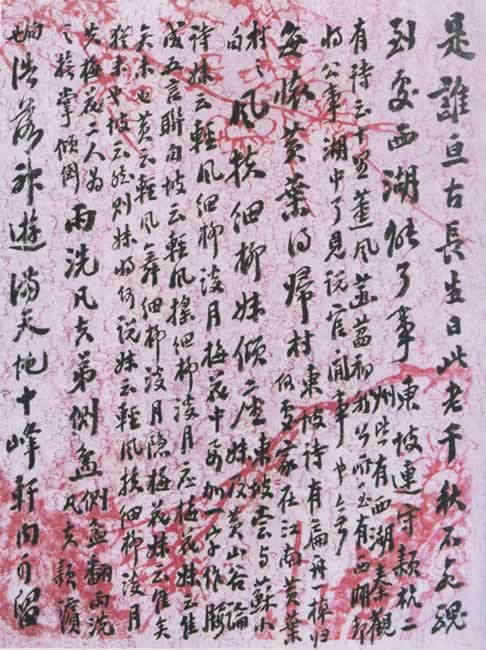 是誰亘古長生日此老千秋不死魂
到處西湖能了事 東坡連守潁杭二
州皆有西湖秦觀
有詩云十里薰風菡萏初我公所至有西湖却
將公事湖中了見說官閒事亦無
每懷黃葉得歸村 東坡詩有扁舟一棹歸
何處家在江南黃葉
村之句 風扶細柳妹傾座 東坡嘗與蘇小
妹及黃山谷論
詩妹云輕風細柳淡月梅花中要加一字作腰
成五言聯句坡云輕風搖細柳淡月 梅花妹云佳
矣未也黃云輕風舞細柳淡月隱梅花妹云佳矣
猶未也坡云然則妹將何說妹云輕風扶細柳淡月
失梅花二人為
之撫掌傾倒 雨洗凡夫弟側盔 側盔翻雨洗
凡夫
浩落神遊滿天地十峰軒內可留